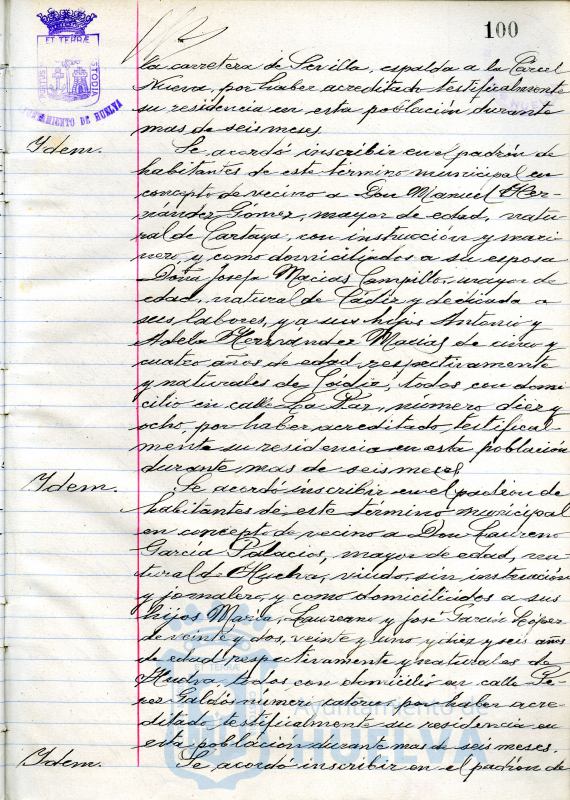 100
ET TERRÆ
PORTUS
CUSTODIA
AYUNTAMIENTO DE HUELVA
la carretera de Sevilla, espalda a la Carcel
Nueva, por haber acreditado testificalmente
su residencia en esta población durante
mas de seis meses.
Idem. Se acordó inscribir en el padrón de
habitantes de este termino municipal en
concepto de vecino a Don Manuel Her-
nández Gómez, mayor de edad, natu-
ral de Cartaya, con instrucción y mari-
nero, y como domiciliados a su esposa
Doña Josefa Macias Campillo, mayor de
edad, natural de Cádiz y dedicada a
sus labores, y a sus hijos Antonio y
Adela Hernández Macias de cinco y
cuatro años de edad respectivamente
y naturales de Cádiz, todos con domi-
cilio en calle La Paz, número diez y
ocho, por haber acreditado testifical-
mente su residencia en esta población
durante mas de seis meses.
Idem. Se acordó inscribir en el padrón de
habitantes de este termino municipal
en concepto de vecino a Don Laureno
García Palacios, mayor de edad, na-
tural de Huelva, viudo, sin instrucción
y jornalero, y como domiciliados a sus
hijos María, Laureano y José García López
de veinte y dos, veinte y uno y diez y seis años
de edad respectivamente y naturales de
Huelva, todos con domicilio en calle Pé-
rez Galdós número catorce, por haber acre-
ditado testificalmente su residencia en
esta población durante mas de seis meses.
Idem. Se acordó inscribir en el padrón de
Ayuntamiento de
HUELVA